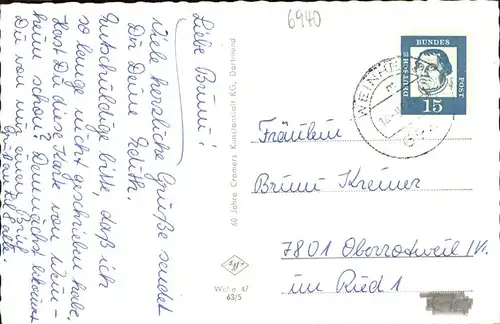 6940
Liebe Brunni!
Viele herzliche Grüße sendet
Dir Deine Edith.
Entschuldige bitte, daß ich
so lange nicht geschrieben habe.
Hast Du diese Karte von Wein-
heim schon? Demnächst bekommst
Du von mir einen Brief
60 Jahre Cramers Kunstanstalt KG, Dortmund
Wei e 47
63/5
DEUTSCHE
BUNDES
POST
15
WEINHEIM
Fräulein
Brunni Kreiner
7801 Oberrotweil IV.
im Ried 1